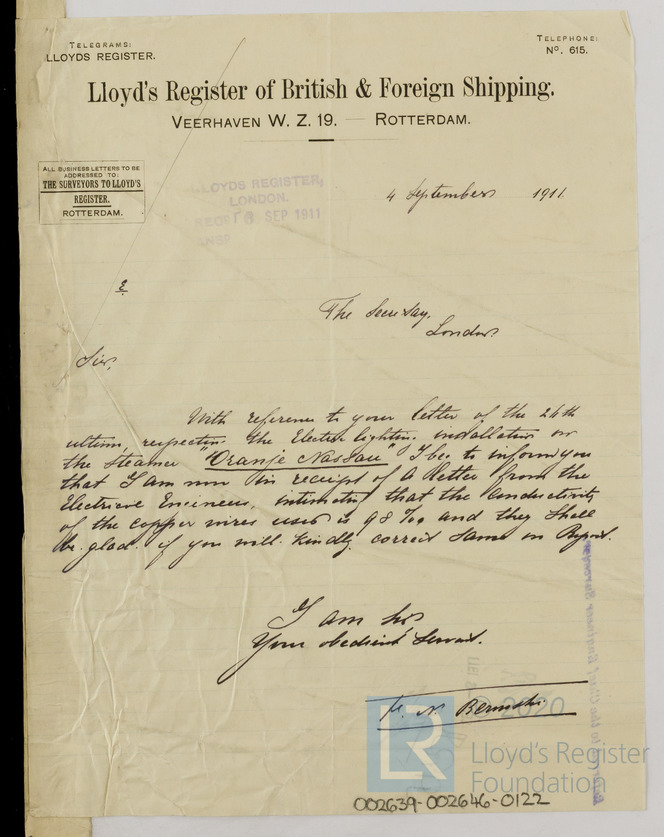 TELEGRAMS:
LLOYDS REGISTER.
TELEPHONE:
No. 615.
Lloyd's Register of British & Foreign Shipping.
VEERHAVEN W. Z. 19. — ROTTERDAM.
ALL BUSINESS LETTERS TO BE
ADDRESSED TO:
THE SURVEYORS TO LLOYD'S
REGISTER.
ROTTERDAM.
LLOYDS REGISTER,
LONDON.
SEP 1911
4 September 1911.
E
The Secretary.
London.
Sir,
With reference to your letter of the 24th
ultimo, respecting the Electric lighting installation on
the steamer "Oranje Nassau" I beg to inform you
that I am now in receipt of a letter from the
Electrical Engineers, intimating that the conductivity
of the copper wires used is 98 % and they shall
be glad if you will kindly correct same on Report.
I am Sir
Your obedient Servant.
© 2020
Lloyd's Register
Foundation
to the Chief Engineer Surveyor
002639-002646-0122